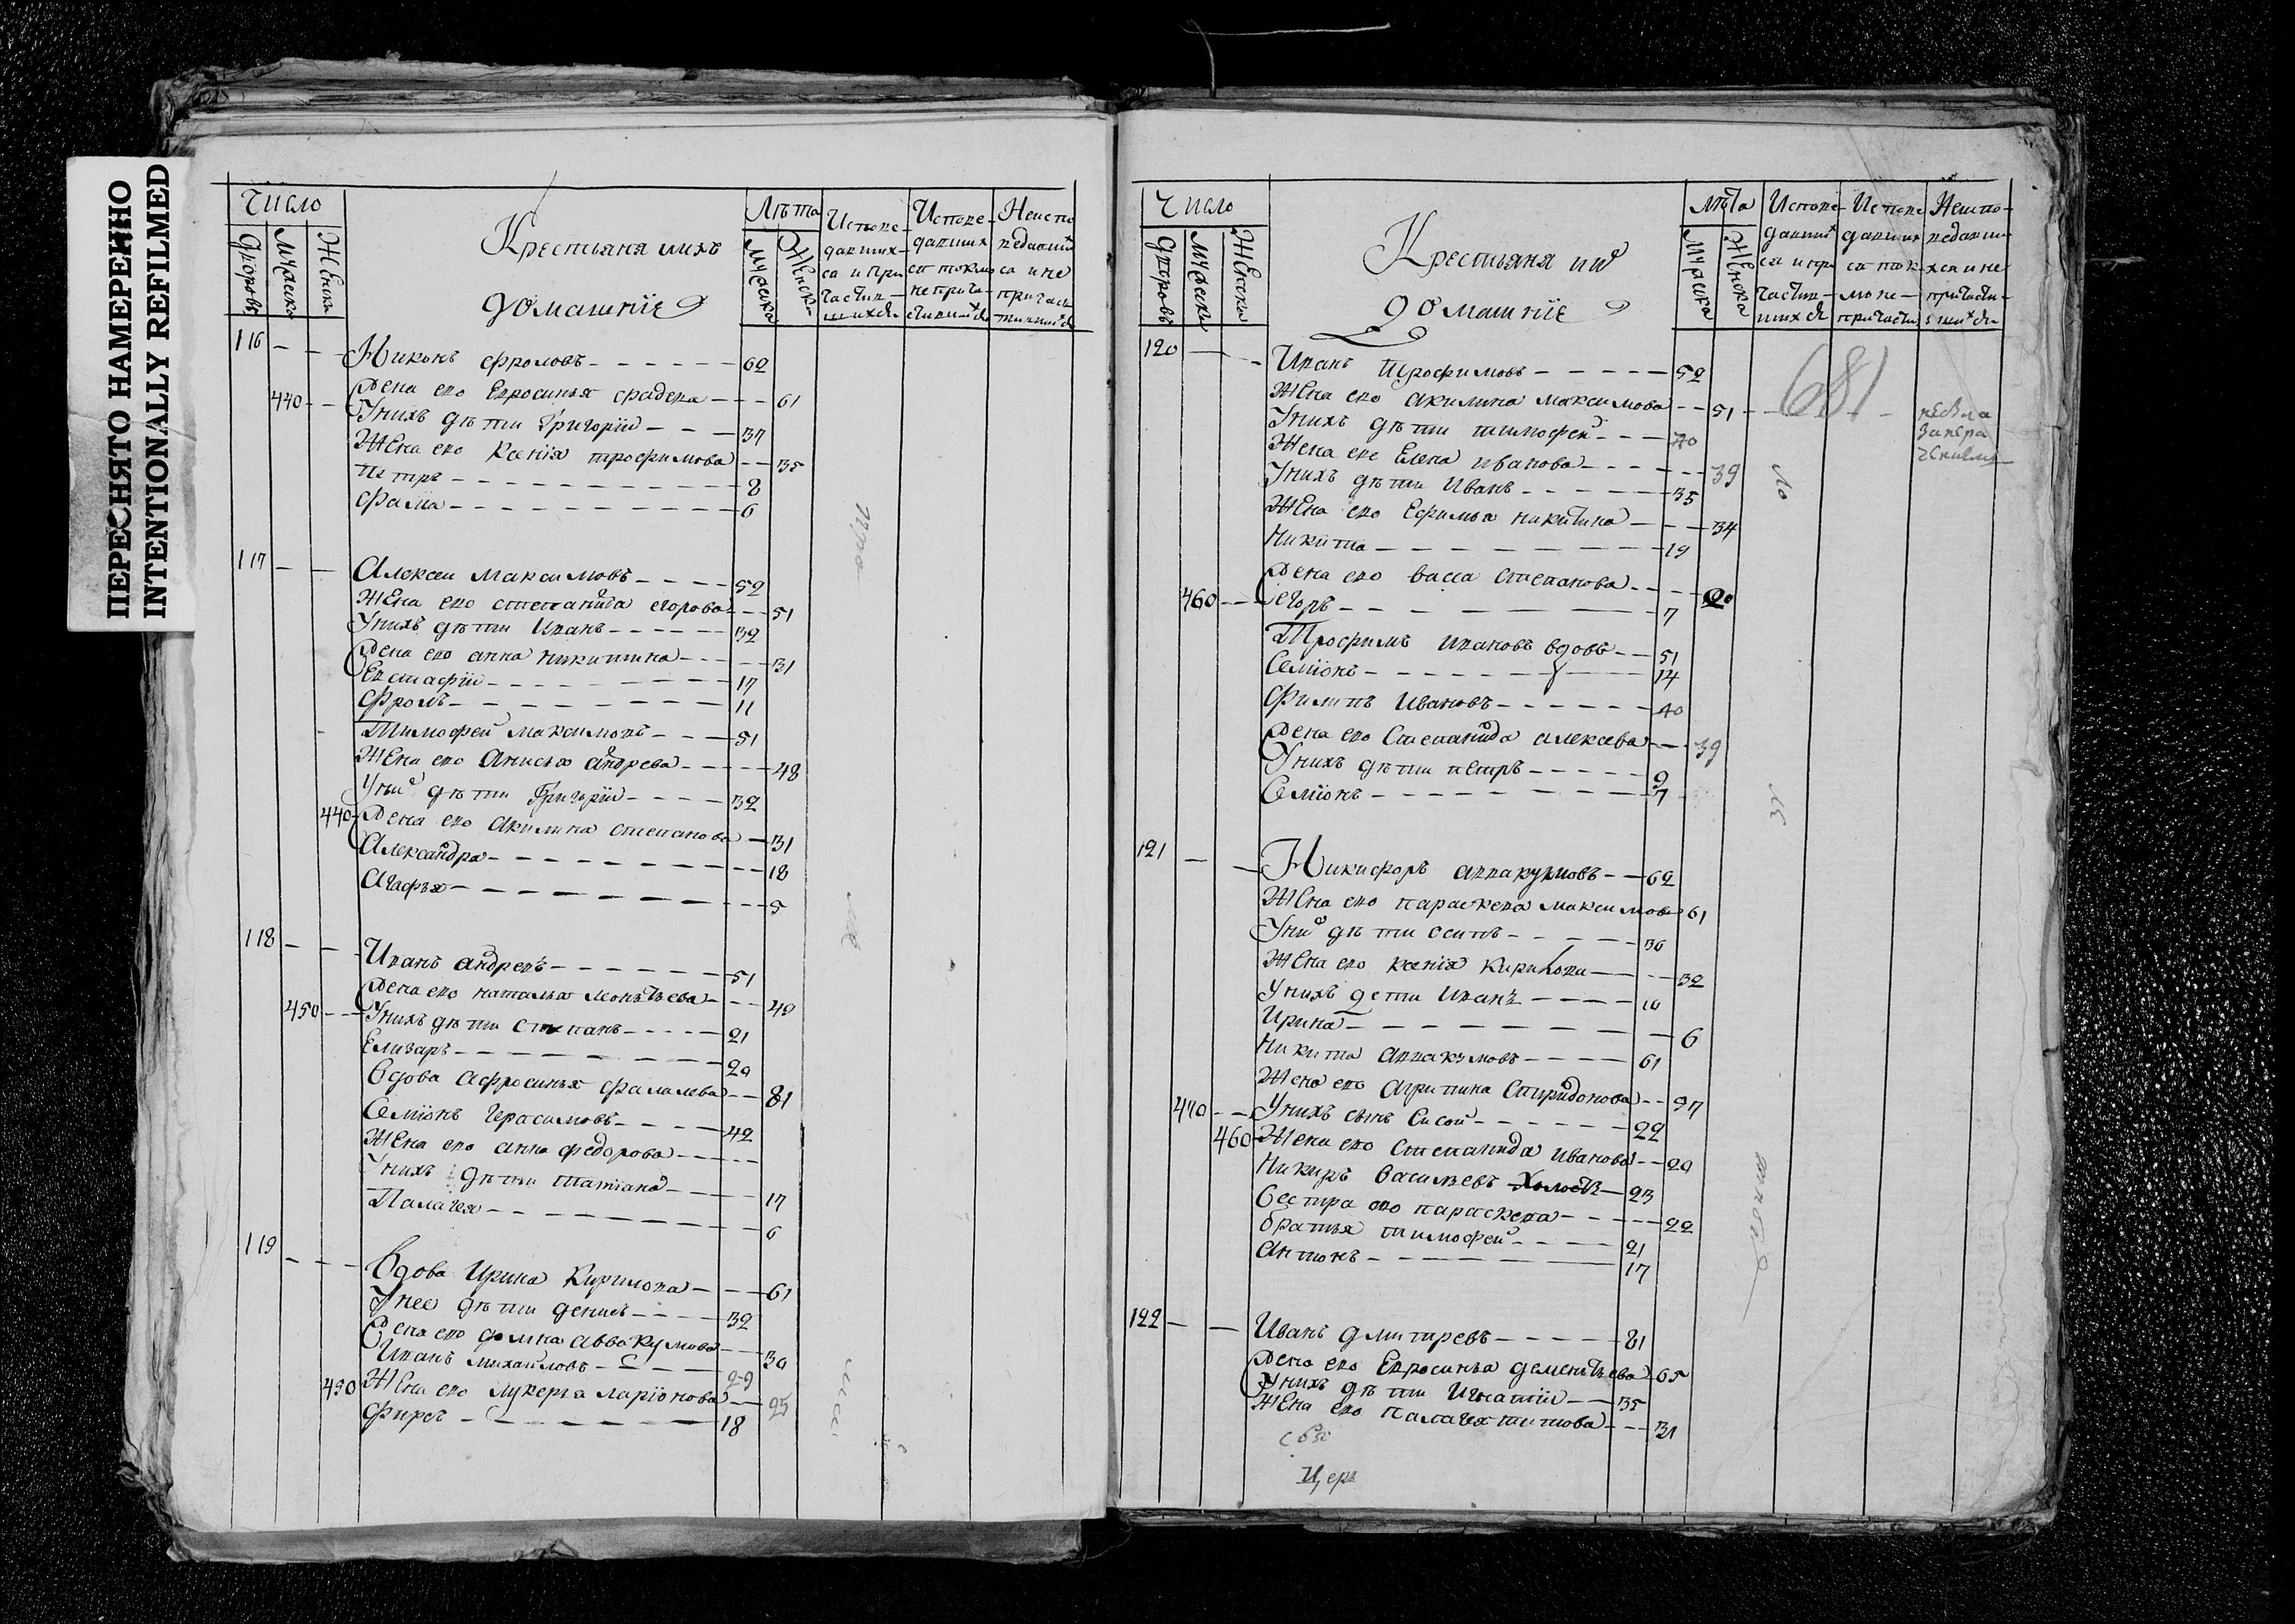 ПЕРЕСНЯТО НАМЕРЕННО
INTENTIONALLY REFILMED
Число
Дворовъ
Мужеска
Женска
Крестьяня иихъ
домашніе
Лѣта
Мужеска
Женска
Испове-
давших-
са и при
частив-
шихся
Испове-
давших
са токмо
не прича-
стившихся
Неиспо
ведавших
са и не
причас
тившихся
116 Никонъ Фроловъ 62
Жена ево Евросинья Фадева 61
440 У нихъ дѣти Григорій 37
Жена ево Ксенія трофимова 35
Петръ 8
Фама 6
117 Алексеи Максимовъ 52
Жена ево степанида егорова 51
У нихъ дѣти Иванъ 32
Жена ево анна никитина 31
Евстафіи 17
Фролъ 11
Тимофеи Максимовъ 51
Жена ево Анисья андрева 48
У них дѣти Григоріи 32
440 Жена ево Акилина степанова 31
Александра 18
Агафья 5
118 Иванъ андревъ 51
Жена ево наталья леонтьева 49
450 У нихъ дѣти степанъ 21
Елизаръ 20
Вдова Афросинья фалалева 81
Семіонъ Герасимовъ 42
Жена ево анна федорова
У нихъ дѣти татіана 17
Палагея 6
119 Вдова Ирина Кирилова 61
У нее дѣти денисъ 32
Жена ево домна аввакумова 30
Иванъ михаиловъ 29
450 Жена ево лукерья ларіонова 25
Фирсъ 18
Число
Дворовъ
Мужески
Женски
Крестьяня их
домашніе
лѣта
Мужеска
Женска
Испове-
давших
са и при
частив-
шихся
Испове
давших
са ток
мо не-
причасти
Неиспо-
ведавши
хся и не
причасти-
вшихся
120 Иванъ трофимовъ 52
681
Жена ево акилина максимова 51
У нихъ дѣти тимофей 40
Жена ево Елена иванова 39
У нихъ дѣти Иванъ 35
Жена ево Ефимья никитина 34
Никита 19
Жена ево васса степанова 20
460 егоръ 7
Трофимъ ивановъ вдовъ 51
Семіонъ 14
Филипъ Ивановъ 40
Жена ево Степанида алексева 39
У нихъ дѣти петръ 9
Семіонъ 7
121 Никифоръ аввакумовъ 62
Жена ево параскева максимова 61
У них дѣти осипъ 36
Жена ево ксенія Кирилова 32
У нихъ дети Иванъ 10
Ирина 6
Никита аввакумовъ 61
Жена ево Агрипина Спиридонова 57
470 У нихъ сынъ Сисой 22
460 Жена ево Степанида иванова 20
Никиръ васильевъ холостъ 23
Сестра ево параскева 22
братья тимофей 21
антонъ 17
122 Иванъ дмитревъ 81
Жена ево Евросинья дементьева 65
У нихъ дѣти Игнатіи 35
Жена ево палагея титова 31
Цер